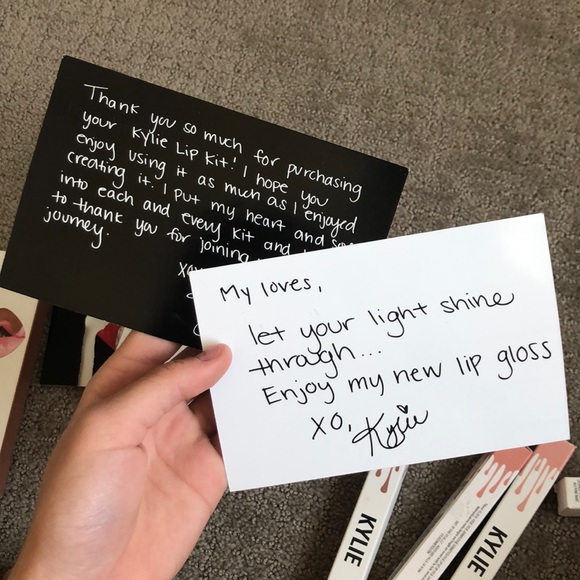 Thank you so much for purchasing
your Kylie Lip Kit! I hope you
enjoy using it as much as I enjoyed
creating it. I put my heart and
into each and every kit and
to thank you for joining
journey.
My loves,
let your light shine
through...
Enjoy my new lip gloss
XO,
Kylie
KYLIE
KYLIE